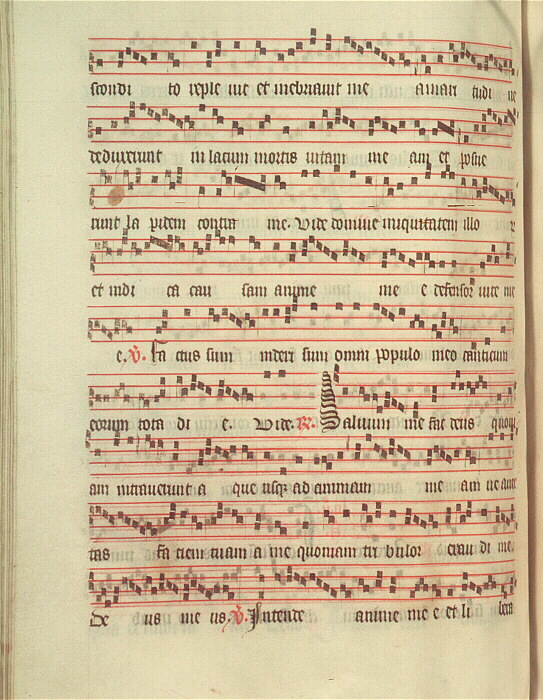 scondi to reple uit et inebriauit me amari tudi ne
deduxerunt in lacum mortis uitam me am et posue
runt la pidem contra me. Vide domine iniquitatem illo r
et iudi ca cau sam anime me e defensor uite me
e. V. Fa ctus sum in deri sum omni populo meo canticum
eorum tota di e. Vide. R. Saluum me fac deus quoni
am intrauerunt a que usq; ad animam me am ne auer
tas fa ciem tuam a me quoniam tri bulor exau di me.
De us me us. V. Intende anime me e et li bera